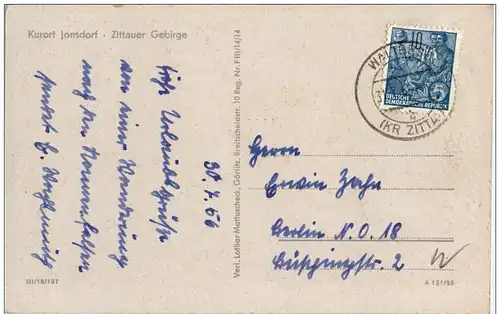 Kurort Jonsdorf · Zittauer Gebirge
30.7.56
Frohe Urlaubsgrüße
von einer Wanderung
nach den Nonnenfelsen
sendet
III/18/197
Verl. Lothar Mattuscheck, Görlitz, Breitscheidstr. 10 Reg. Nr. F III/14/14
10
DEUTSCHE
DEMOKRATISCHE REPUBLIK
(KR ZITTAU)
Herrn
Erwin Zahn
Berlin N.O. 18
Büschingstr. 2
A 151/55